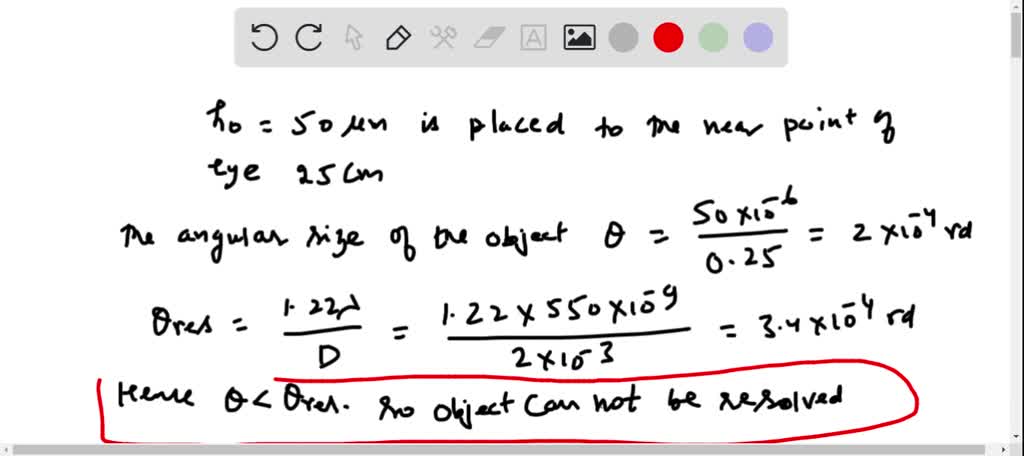 h₀ = 50 μm is placed to the near point of
eye 25 cm
The angular size of the object θ = 50 × 10⁻⁶ / 0.25 = 2 × 10⁻⁴ rd
θres = 1.22λ / D = 1.22 × 550 × 10⁻⁹ / 2 × 10⁻³ = 3.4 × 10⁻⁴ rd
Hense θ < θres. so object can not be resolved